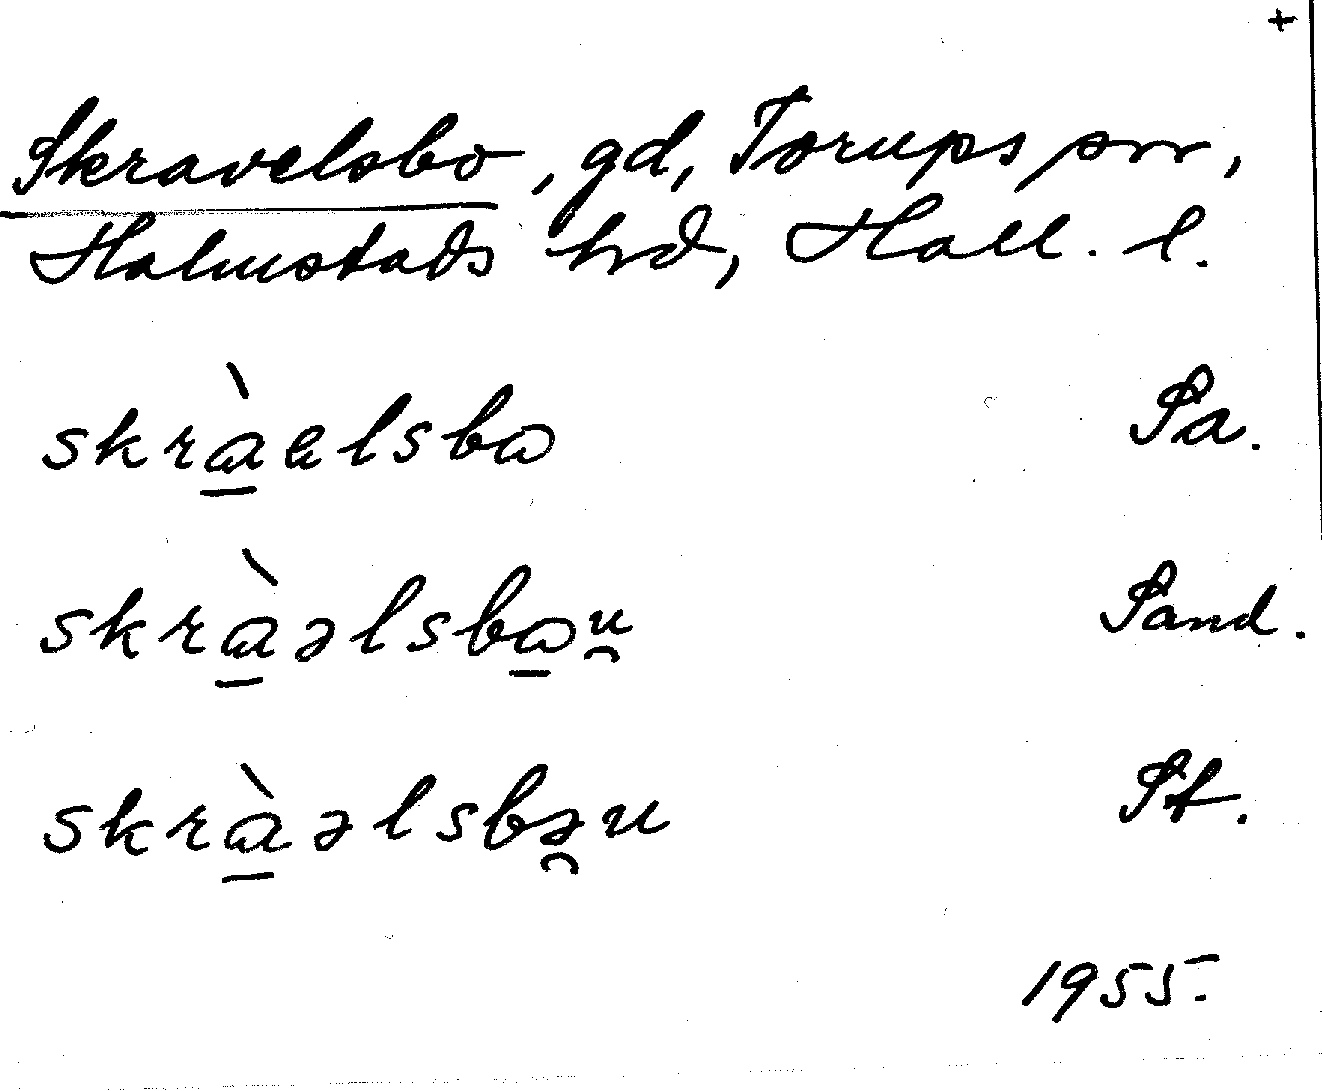 +
Skravelsbo, gd, Torups sn,
Halmstads hd, Hall. l.
skràaelsbɷ Sa.
skràaəlsbɷu̯ Sand.
skràaəlsbə̯u St.
1955.